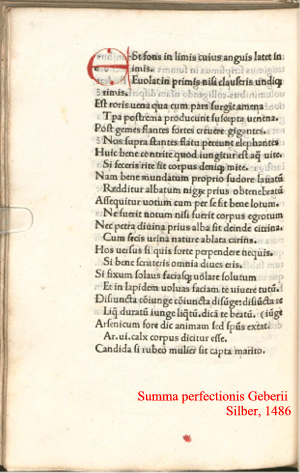 ESt fons in limis cuius anguis latet in
imis.
Euolat in primis nisi clauseris undiqꝫ
rimis.
Est roris uena qua cum pars surgit amena
Tpa postrema producunt suscepta uenena.
Post gemes flantes fortes creuere gigantes.
Nos supra stantes flatu pereunt elephantes
Huic bene contrite quod iungitur est aq̃ uite.
Si feceris rite sit corpus deniqꝫ mite.
Nam bene mundatum proprio sudore lauatũ
Rædditur albatum nigꝝ prius obtenebratũ
Assequitur uotum cum per se fit bene lotum.
Ne fuerit notum nisi fuerit corpus egrotum
Nec petra diuina prius alba sit deinde citrina.
Cum fecis urina nature ablata carina.
Hos uersus si quis forte perpendere nequis.
Si bene scruteris omnia diues eris.
Si fixum soluas faciasqꝫ uolare solutum
Et in lapidem uoluas faciam te uiuere tutũ.
Disiuncta cõiunge cõiuncta disiũge:disiũcta re
Liq̃ duratũ iunge liq̃tũ.dicã te beatũ. (iũge
Arsenicum fore dic animam sed spũs extat.
Ar.ui.calx corpus dicitur esse.
Candida si rubeo mulier sit capta marito.
Summa perfectionis Geberii
Silber, 1486